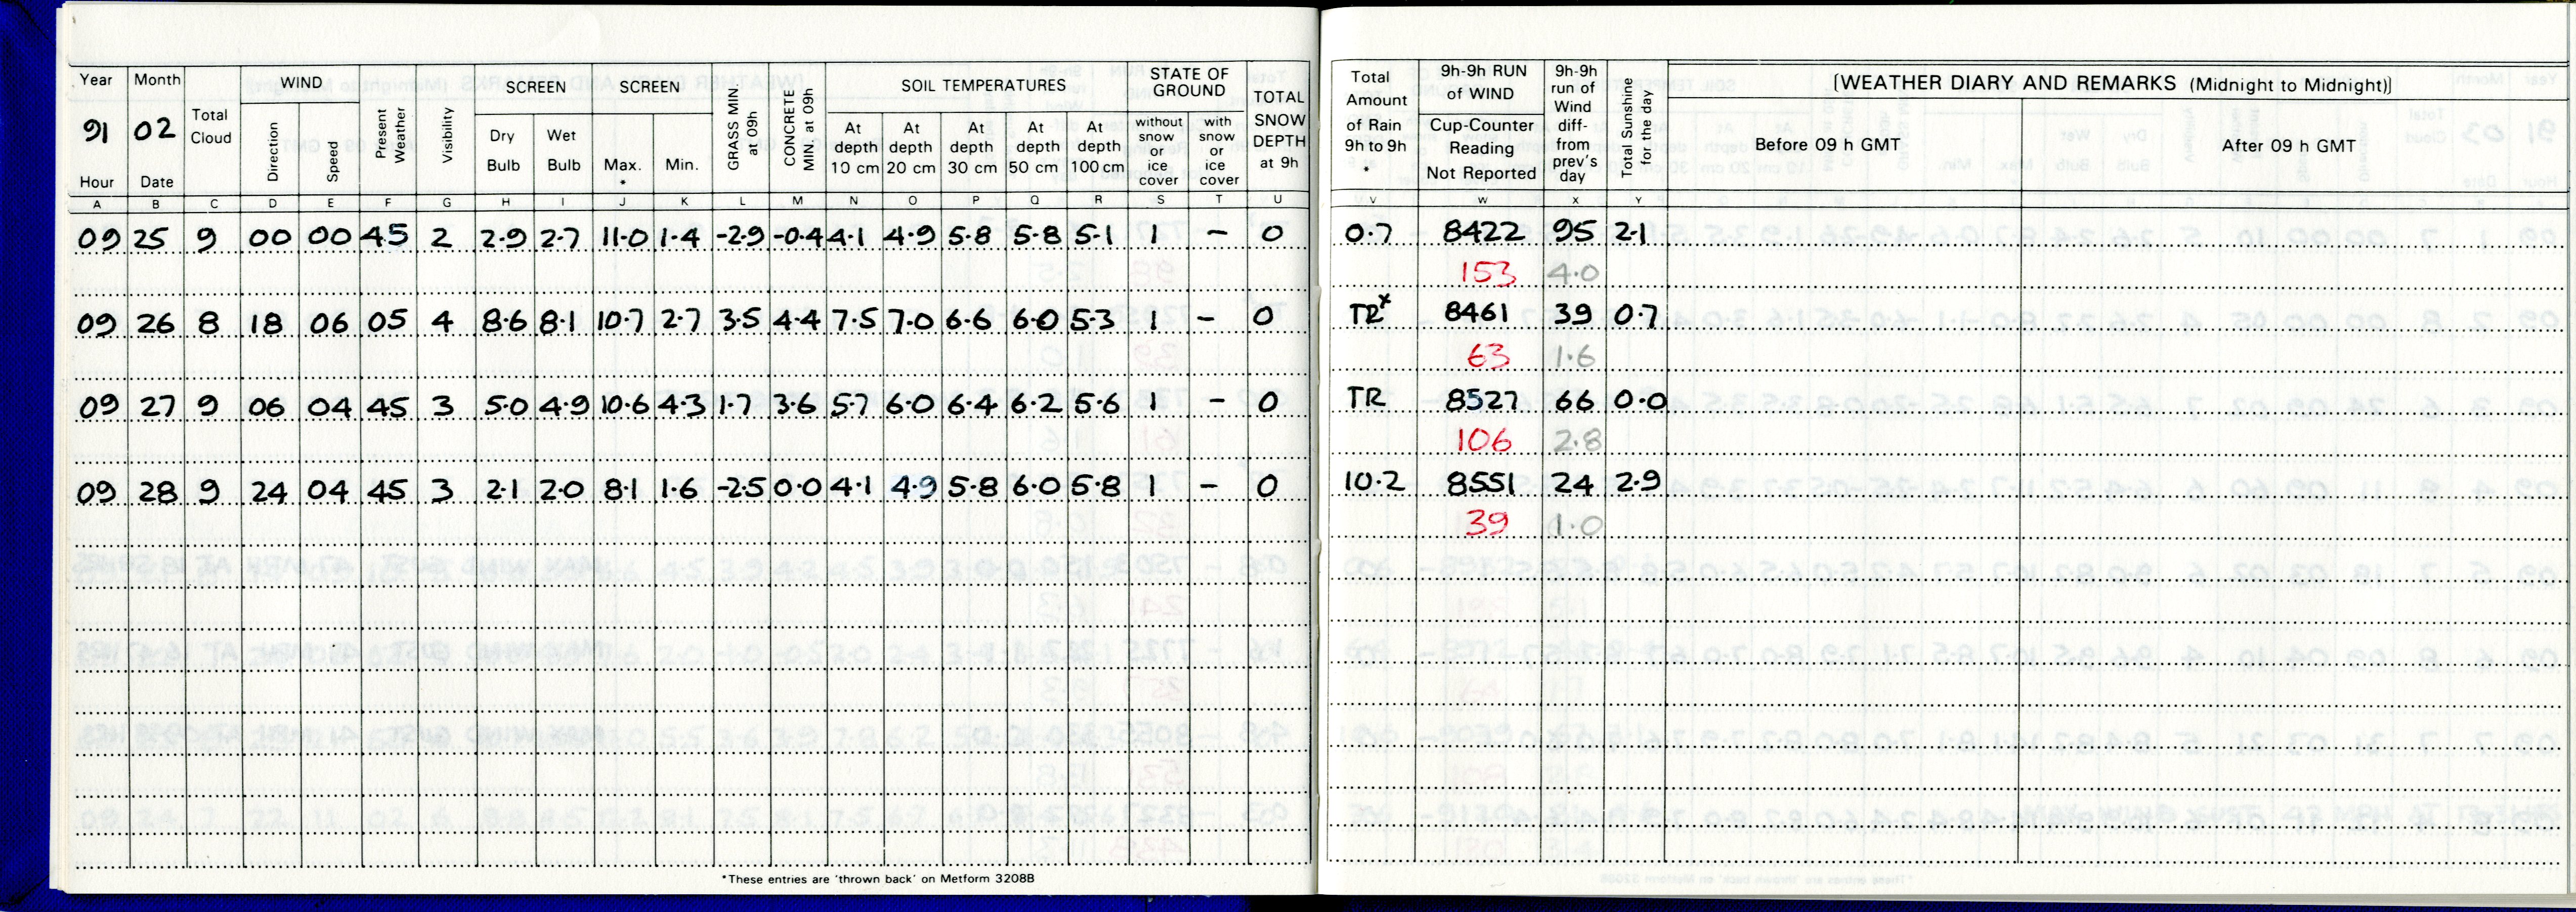 Year Month Total Cloud WIND Present Weather Visibility SCREEN SCREEN GRASS MIN. at 09h CONCRETE MIN. at 09h SOIL TEMPERATURES STATE OF GROUND TOTAL SNOW DEPTH at 9h
91 02 Direction Speed Dry Bulb Wet Bulb Max. * Min. At depth 10 cm At depth 20 cm At depth 30 cm At depth 50 cm At depth 100 cm without snow or ice cover with snow or ice cover
Hour Date
A B C D E F G H I J K L M N O P Q R S T U
09 25 9 00 00 45 2 2.9 2.7 11.0 1.4 -2.9 -0.4 4.1 4.9 5.8 5.8 5.1 1 - 0
09 26 8 18 06 05 4 8.6 8.1 10.7 2.7 3.5 4.4 7.5 7.0 6.6 6.0 5.3 1 - 0
09 27 9 06 04 45 3 5.0 4.9 10.6 4.3 1.7 3.6 5.7 6.0 6.4 6.2 5.6 1 - 0
09 28 9 24 04 45 3 2.1 2.0 8.1 1.6 -2.5 0.0 4.1 4.9 5.8 6.0 5.8 1 - 0
*These entries are 'thrown back' on Metform 3208B
Total Amount of Rain 9h to 9h * 9h-9h RUN of WIND Cup-Counter Reading Not Reported 9h-9h run of Wind diff- from prev's day Total Sunshine for the day [WEATHER DIARY AND REMARKS (Midnight to Midnight)]
Before 09 h GMT After 09 h GMT
V W X Y
0.7 8422 95 2.1
153 4.0
TR x 8461 39 0.7
63 1.6
TR 8527 66 0.0
106 2.8
10.2 8551 24 2.9
39 1.0